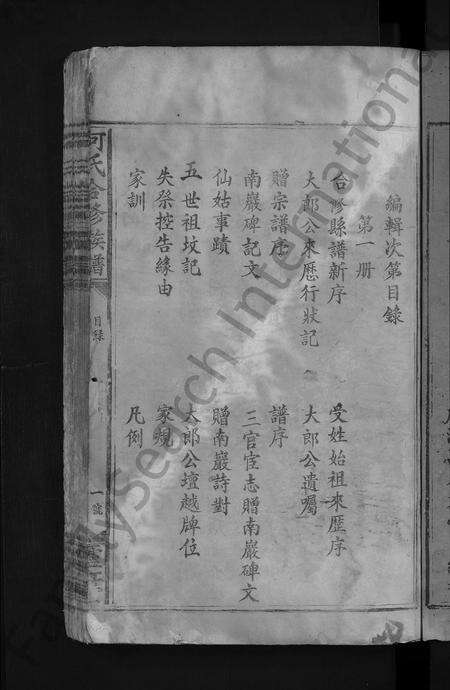 編輯次第目錄
第一册
合修縣譜新序
受姓始祖來歷序
大郎公來歷行狀記
大郎公遺囑
贈宗譜序
譜序
南巖碑記文
三官宦志贈南巖碑文
仙姑事蹟
贈南巖詩對
五世祖坟記
大郎公壇越牌位
失祭控告緣由
家規
家訓
凡例
何氏合修族譜
目錄
一號
FamilySearch International